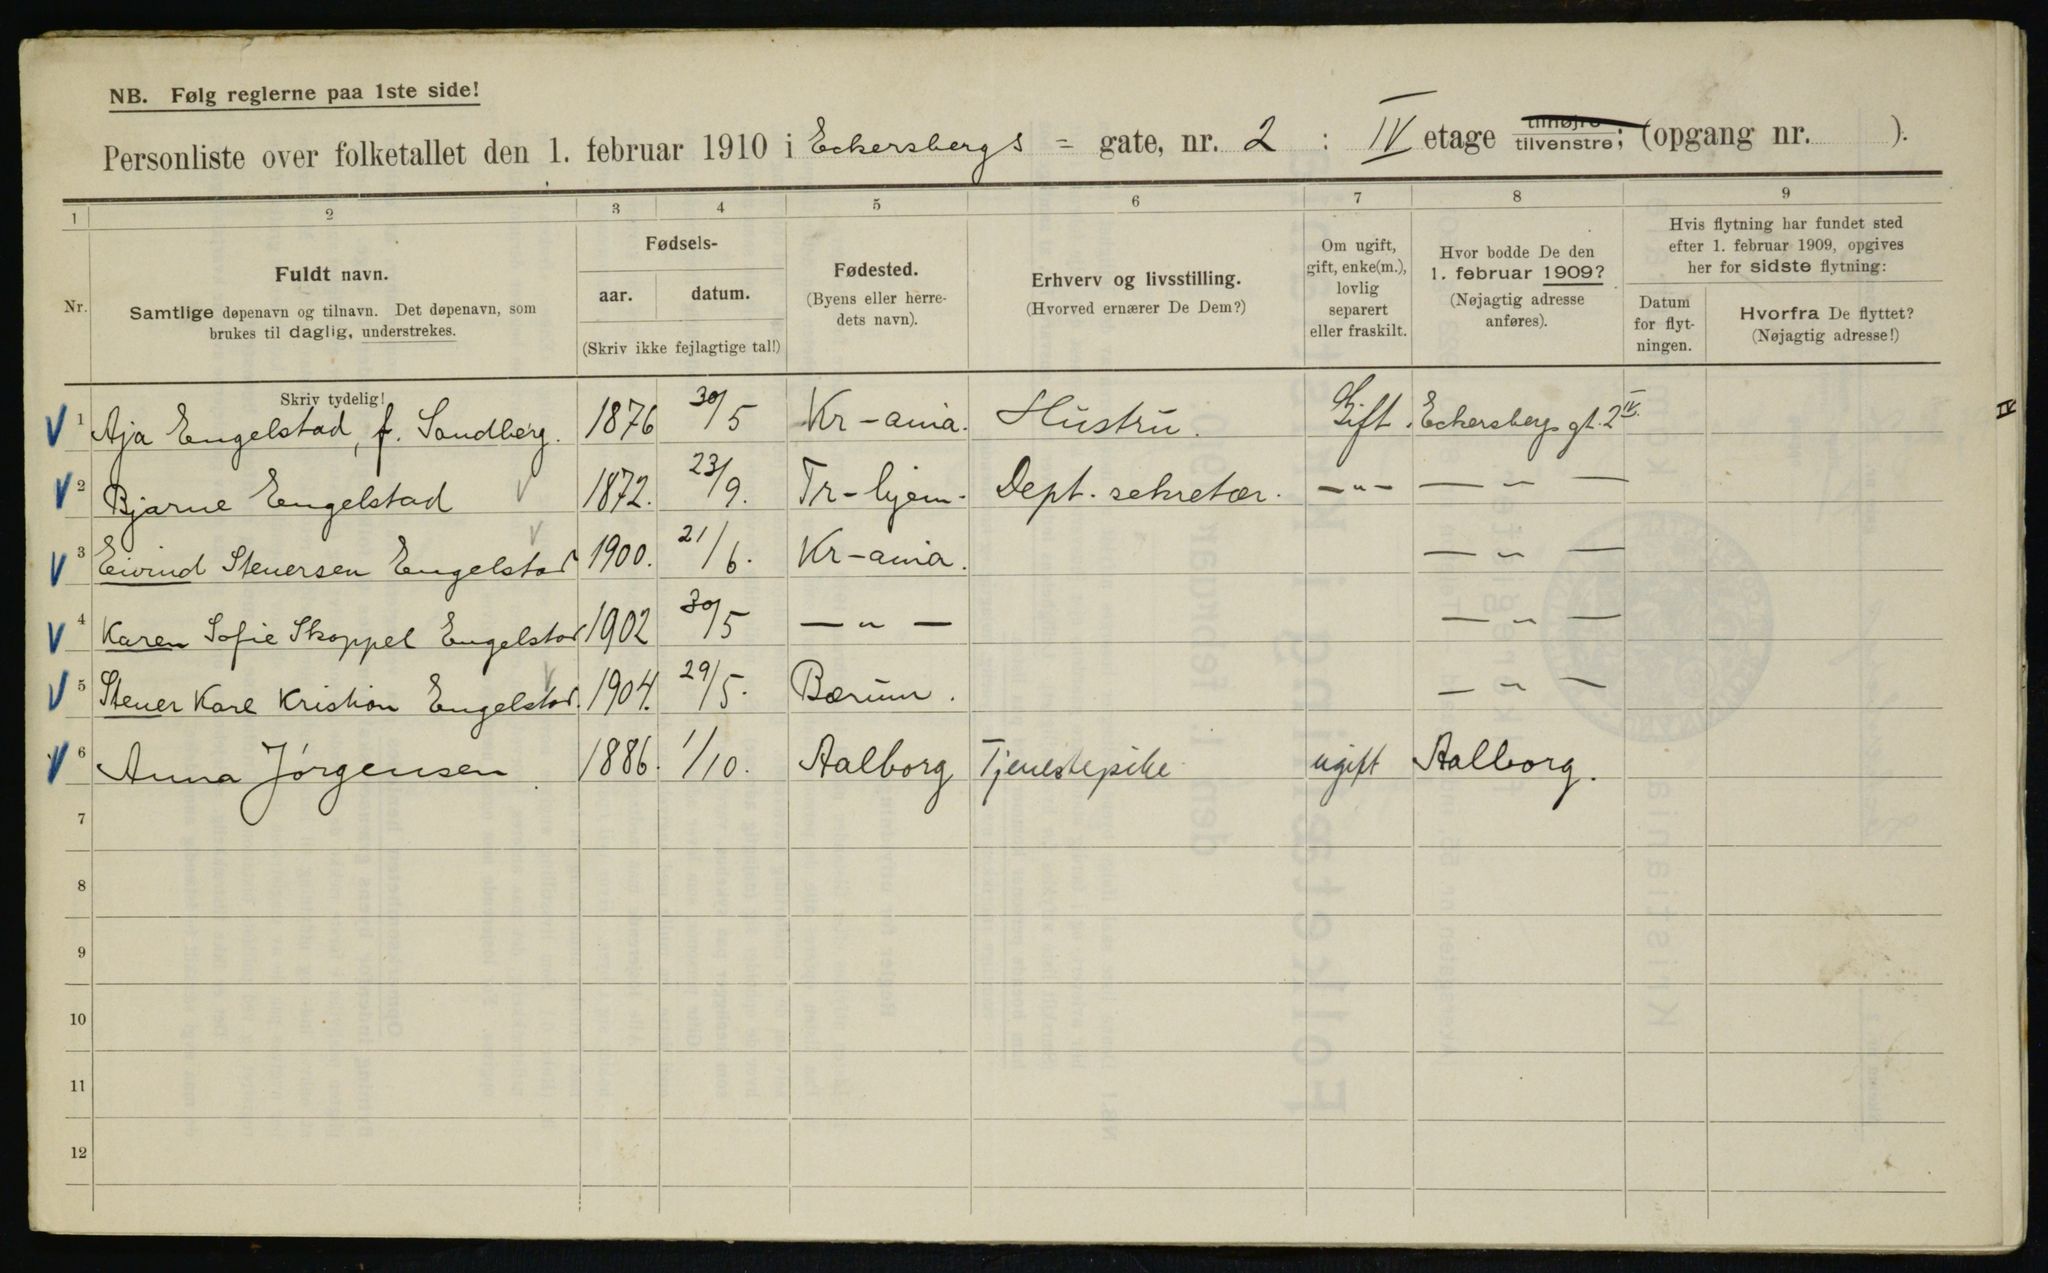 NB. Følg reglerne paa 1ste side!
Personliste over folketallet den 1. februar 1910 i Eckersbergs = gate, nr. 2 : IV etage tilhøjre tilvenstre; (opgang nr. ).
1 2 3 4 5 6 7 8 9
Nr.
Fuldt navn.
Samtlige døpenavn og tilnavn. Det døpenavn, som
brukes til daglig, understrekes.
Skriv tydelig!
Fødsels-
aar. datum.
(Skriv ikke fejlagtige tal!)
Fødested.
(Byens eller herre-
dets navn).
Erhverv og livsstilling.
(Hvorved ernærer De Dem?)
Om ugift,
gift, enke(m.),
lovlig
separert
eller fraskilt.
Hvor bodde De den
1. februar 1909?
(Nøjagtig adresse
anføres).
Hvis flytning har fundet sted
efter 1. februar 1909, opgives
her for sidste flytning:
Datum
for flyt-
ningen.
Hvorfra De flyttet?
(Nøjagtig adresse!)
V 1 Aja Engelstad, f. Sandberg. 1876 30/5 Kr-ania. Hustru. Gift. Eckersbergs gt. 2 IV.
IV
V 2 Bjarne Engelstad V 1872. 23/9. Tr-hjem. Dept. sekretær. — " — — " —
V 3 Eivind Steuersen Engelstad 1900. 21/6. Kr-ania. — " —
V 4 Karen Sofie Skappel Engelstad 1902 30/5 — " — — " —
V 5 Steuer Kare Kristian Engelstad. 1904. 29/5. Bærum. — " —
V 6 Anna Jörgensen. 1886. 1/10. Aalborg Tjenestepike ugift Aalborg.
7
8
9
10
11
12